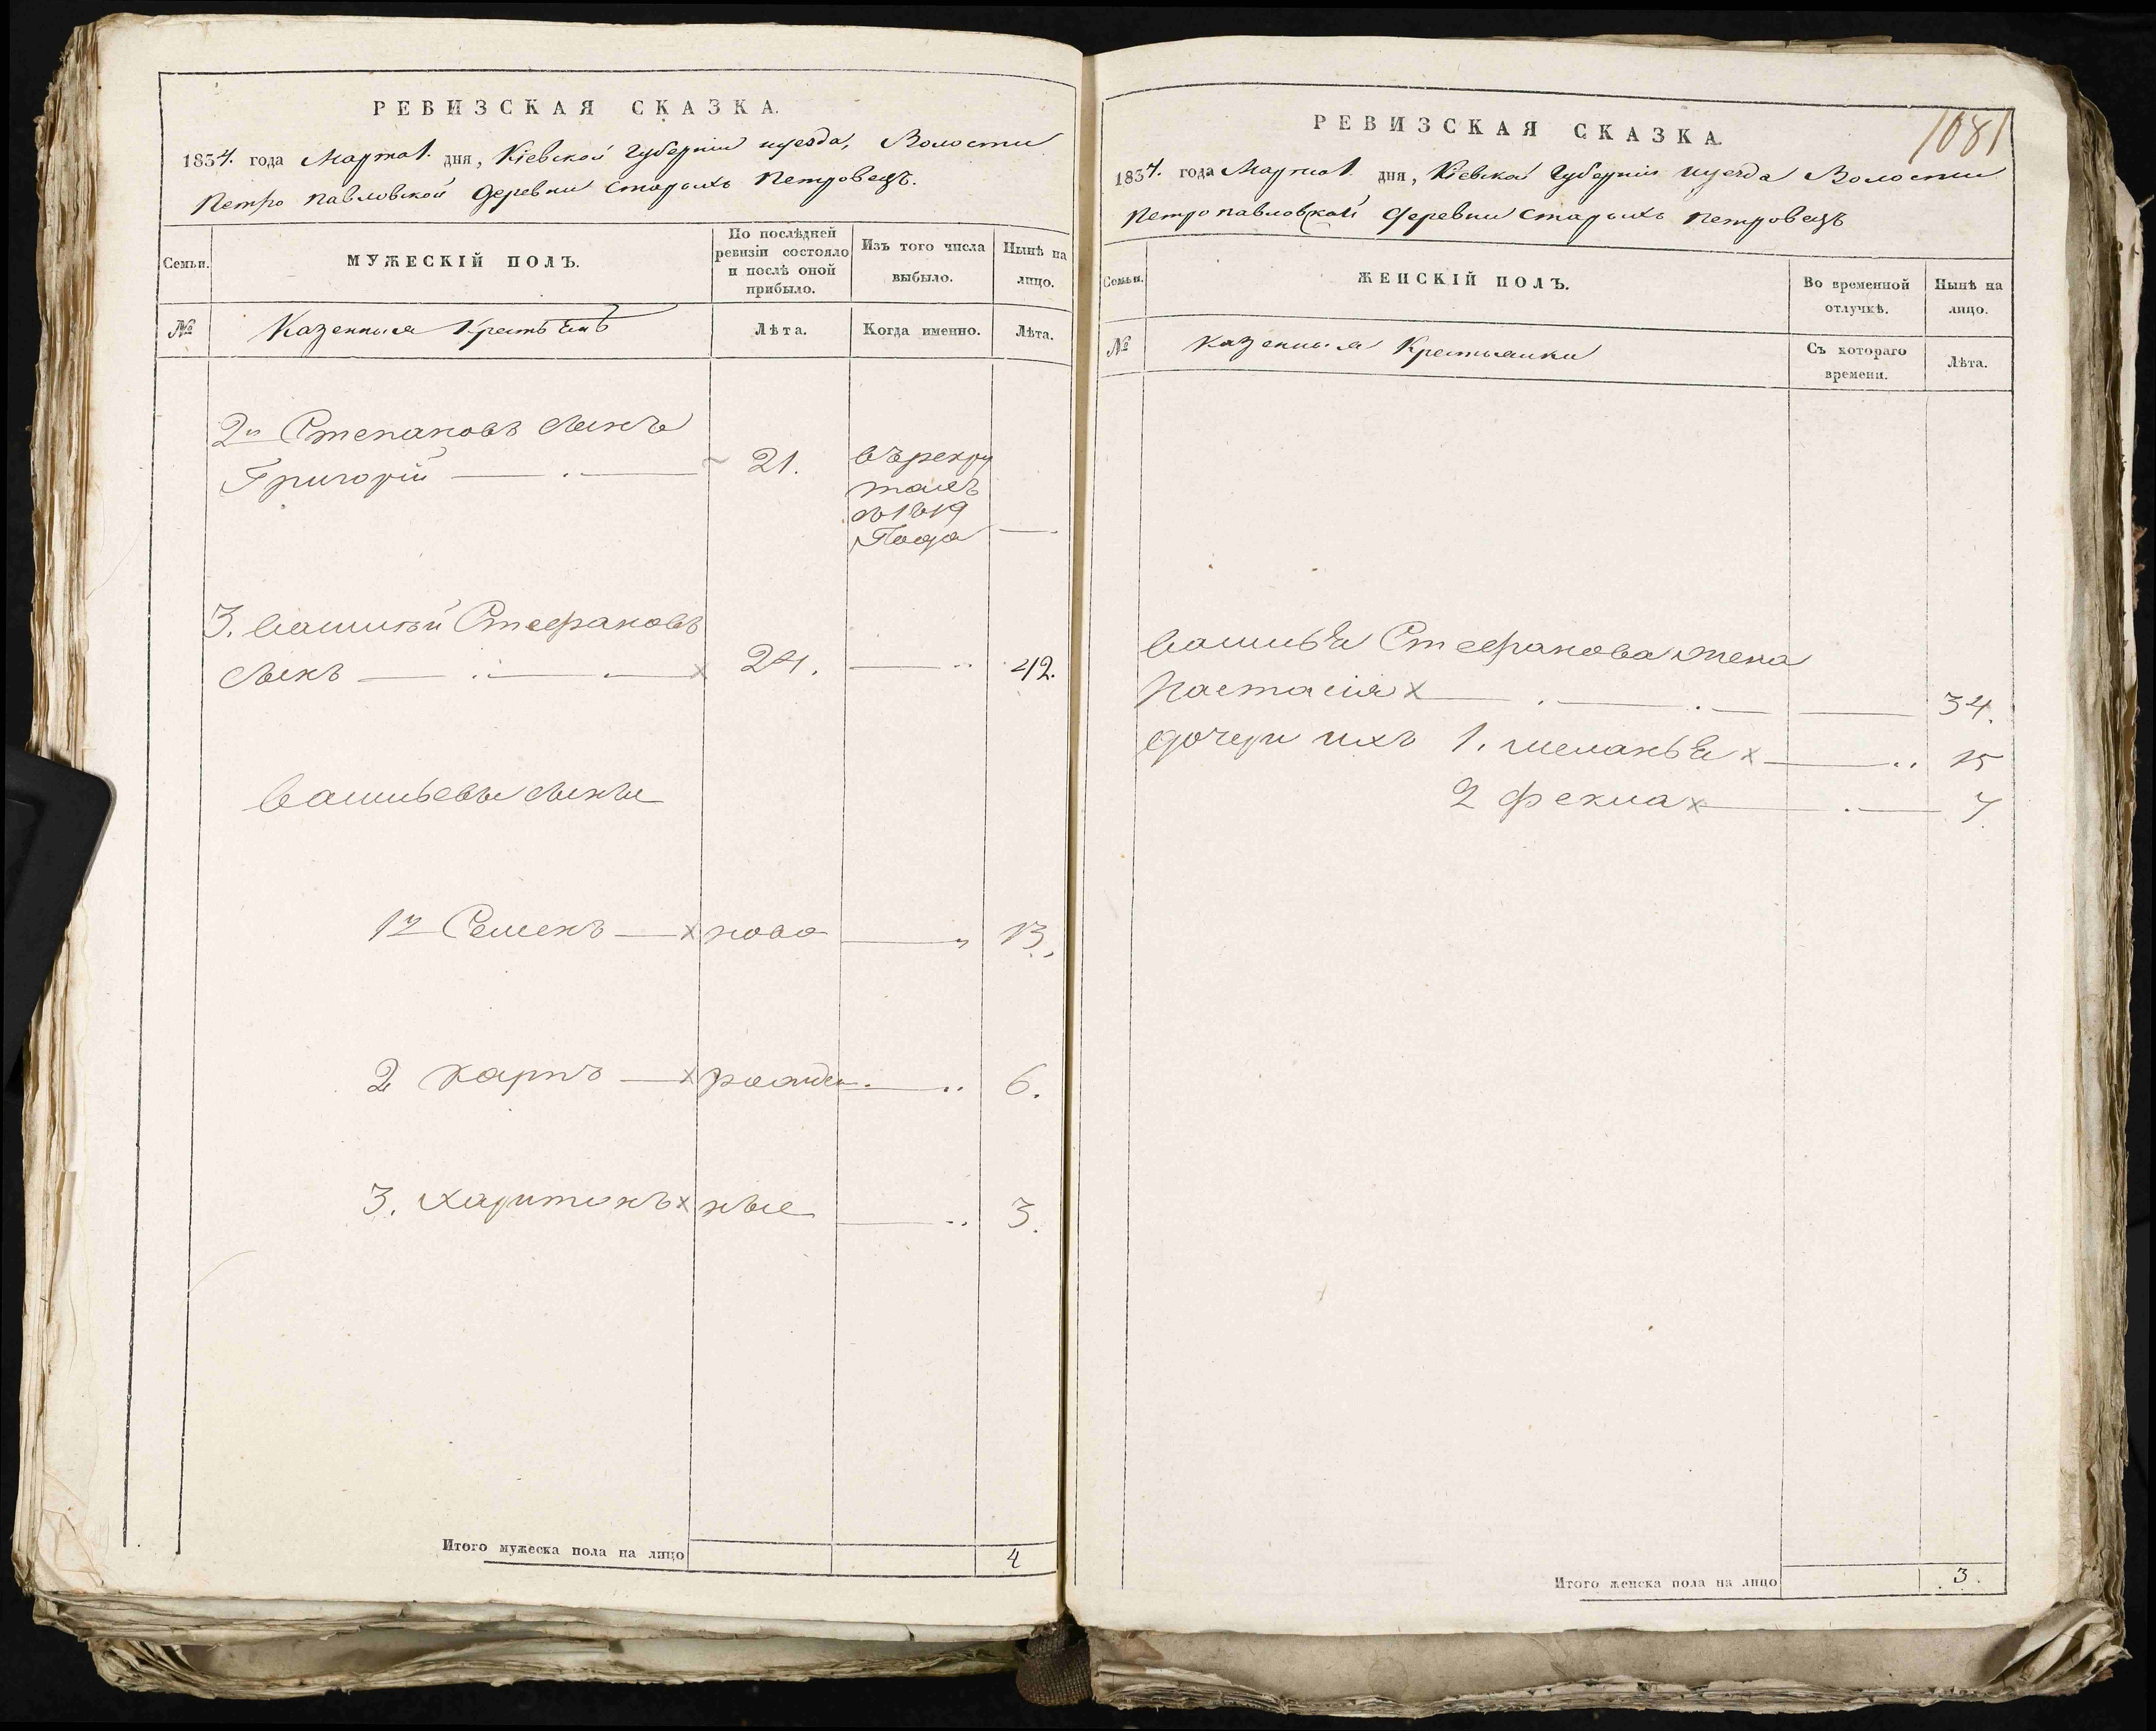 РЕВИЗСКАЯ СКАЗКА.
1834. года Марта 1. дня, Кіевской Губерніи и уезда, Волости
Петро павловской Деревни Старыхъ Петровецъ.
Семьи.
МУЖЕСКІЙ ПОЛЪ.
По послѣдней
ревизіи состояло
и послѣ оной
прибыло.
Изъ того числа
выбыло.
Нынѣ на
лицо.
№
Казенныя Крестьянъ
Лѣта.
Когда именно.
Лѣта.
2й Степановъ сынъ
Григорій 21.
въ рекру
тахъ
съ 1819
Года
3. василій Стефановъ
сынъ х 24. 42.
васильевы сыны
1й Семенъ х ново 13.
2 карпъ х рожден 6.
3. харитонъ х ные 3.
Итого мужеска пола на лицо 4
1081
РЕВИЗСКАЯ СКАЗКА.
1834. года Марта 1. дня, Кіевской Губерніи и уезда Волости
Петро павловской деревни Старыхъ Петровецъ
Семьи.
ЖЕНСКІЙ ПОЛЪ.
Во временной
отлучкѣ.
Нынѣ на
лицо.
№
Казенныя Крестьянки
Съ котораго
времени.
Лѣта.
василья Стефанова жена
Настасія х 34.
дочери ихъ 1. меланья х 15
2 фекла х 7.
Итого женска пола на лицо 3.